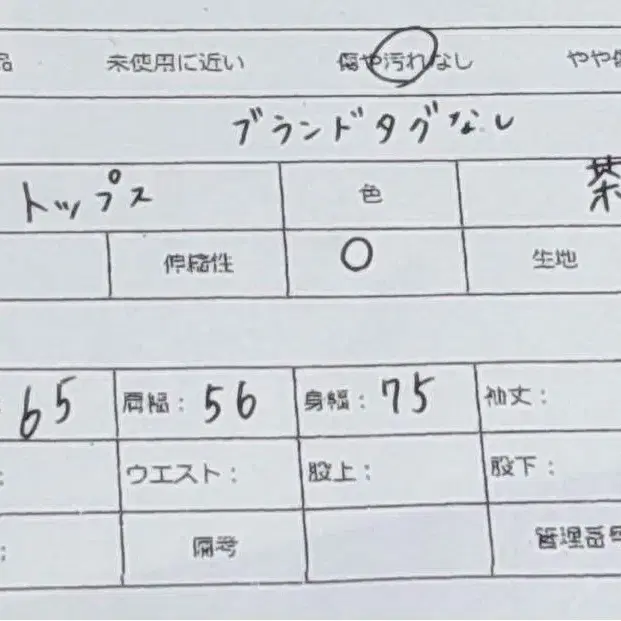 品 未使用に近い 傷や汚れなし やや傷
ブランドタグなし
トップス 色 茶
伸縮性 ○ 生地
65 肩幅: 56 身幅: 75 袖丈:
ウエスト: 股上: 股下:
備考 管理番号